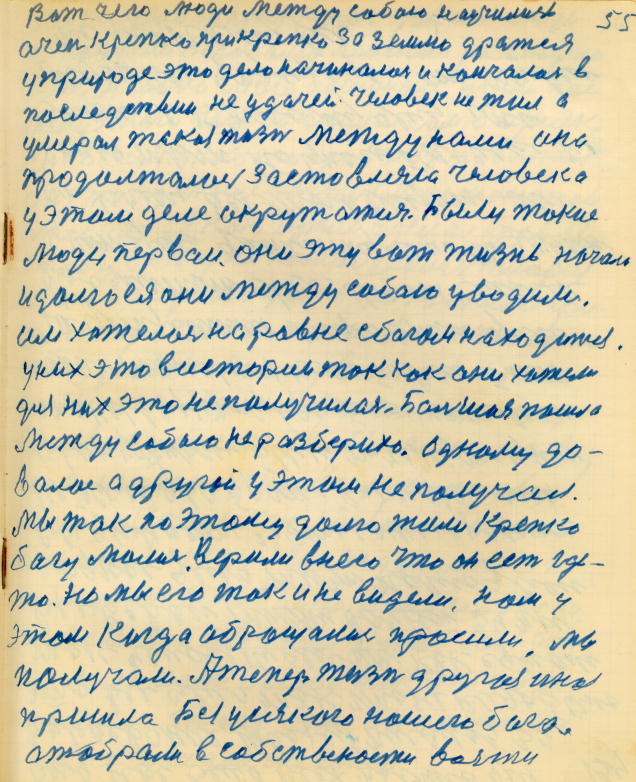 55
Вот чего люди между собою научился
очен крепко прикрепко за землю дратся
у природе это дело начиналос и кончалос в
последствии не удачей. Человек не жил а
умерал такая жизн между нами она
продолжалос заставляла человека
у этом деле окружатся. Были такие
люди первои. они эту вот жизнь начали
и долгося они между собою уводили.
им хателос на равне с богом находится.
у них это в истории так как они хатели
для них это не получилос. Болшая пошла
между собою не разбериха. одному до-
валос а другой у этом не получал.
Мы так по этому долго жили крепко
богу молилис. Верили в него что он ест где-
то. но мы его так и не видели. нам у
этом когда обращалис просили, мы
получали. А тепер жизн другая она
пришла без усякого нашего бога.
отобрали в собствености взяти